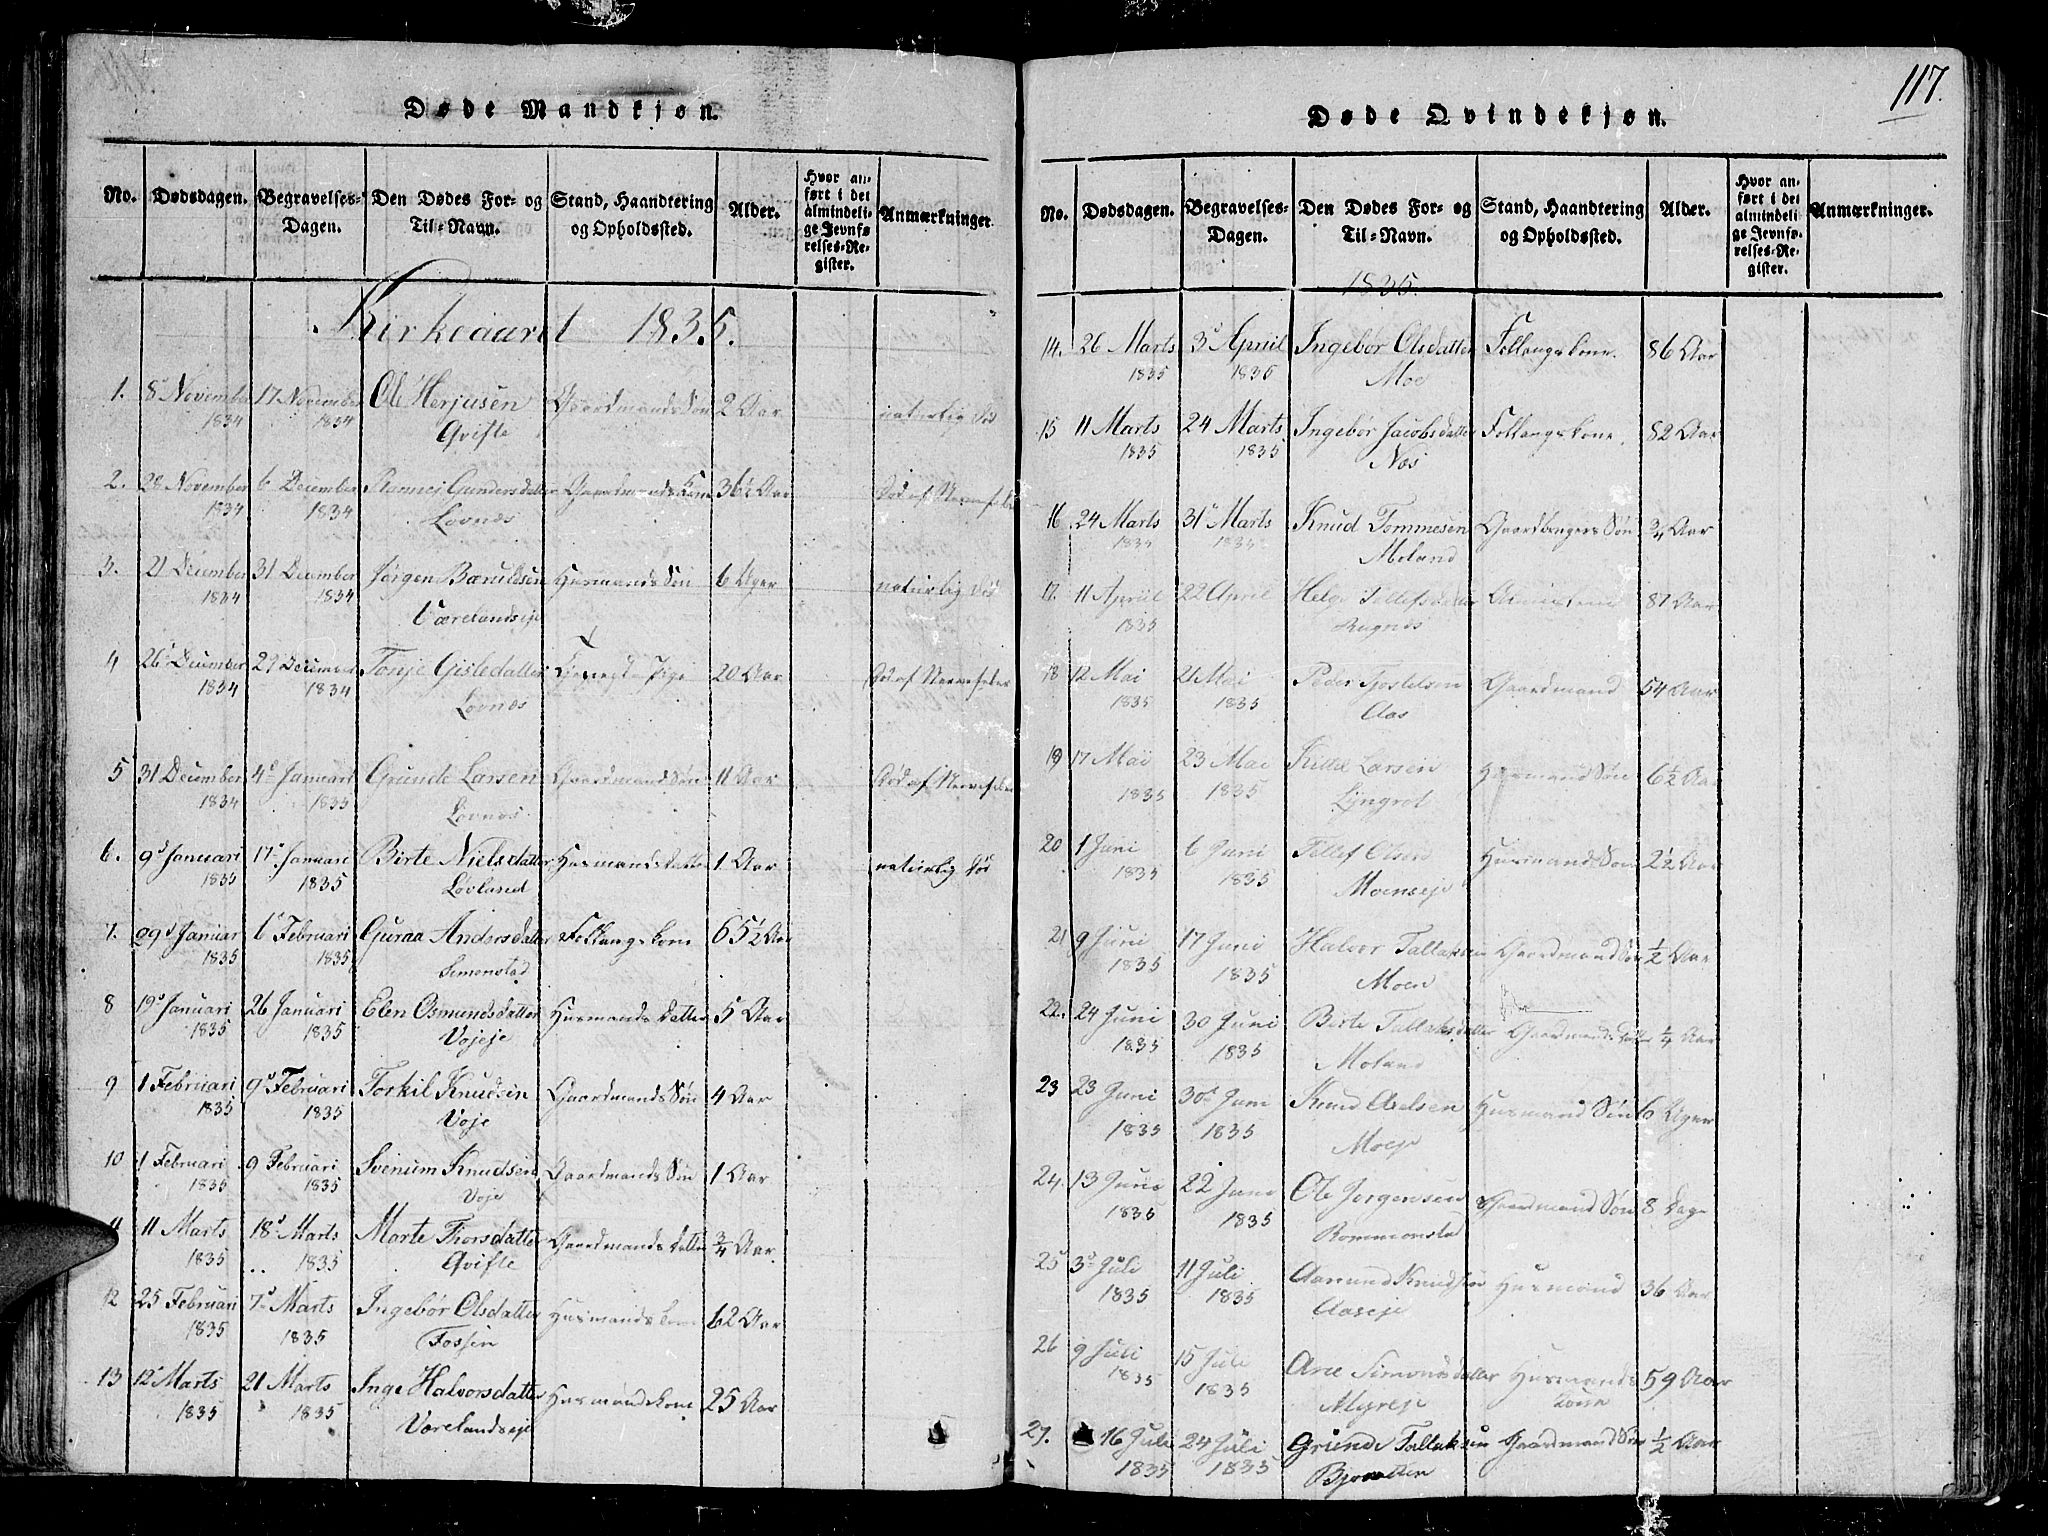 Døde Mandkjøn.
No. Dødsdagen. Begravelses-Dagen. Den Dødes For- og Til-Navn. Stand, Haandtering og Opholdssted. Alder. Hvor anført i det almindelige Jevnførelses-Register. Anmærkninger.
Kirkeaaret 1835.
1. 8d November 17 November Ole Herjusen Gaardmands Søn 2 Aar naturlig Død
1834 1834 Qvifte
2. 28 November 6 December Gundersdatter Gaardmands Kone 36½ Aar Død af Nervefeber
1834 1834 Lovnes
3. 21 December 31 December Jørgen Bærulfsen Husmands Søn 6 Uger naturlig Død
1834 1834 Værelandseje
4 26d December 29 December Tonje Gisledatter Pige 20 Aar Død af Nervefeber
1834 1834 Lovnes
5 31 December 4d Januari Gunde Larsen Gaardmands Søn 11 Aar Død af Nervefeber
1834 1835 Lovnes
6. 9d Januari 17d Januari Birte Nielsdatter Husmands datter 1 Aar naturlig Død
1835 1835 Løvland
7. 29d Januar 6d Februari Guraa Andersdatter Follangskone 65½ Aar
1835 1835 Simonstad
8 19d Januari 26 Januari Elen Osmundsdatter Husmands datter 5 Aar
1835 1835 Vojeje
9 1 Februari 9d Februari Torkil Knudsen Gaardmands Søn 4 Aar
1835 1835 Voje
10 1 Februari 9 Februari Svenum Knudsen Gaardmands Søn 1 Aar
1835 1835 Voje
11 11 Marts 18d Marts Marte Thorsdatter Gaardmands datter ¾ Aar
1835 1835 Qvifte
12 25 Februari 7d Marts Ingebør Olsdatter Husmands kone 62 Aar
1835 1835 Fossen
13 12d Marts 21 Marts Inge Halvorsdatter Husmandskone 25 Aar
1835 1835 Værelandseje
117.
Døde Qvindekjøn.
No. Dødsdagen. Begravelses-Dagen. Den Dødes For- og Til-Navn. Stand, Haandtering og Opholdssted. Alder. Hvor anført i det almindelige Jevnførelses-Register. Anmærkninger.
1835.
14. 26 Marts 3d April Ingebør Olsdatter Follangskone. 86 Aar
1835 1835 Moe
15 11 Marts 24 Marts Ingebør Jacobsdatter Follangskone. 82 Aar
1835 1835 Næs
16 24 Marts 31d Marts Knud Tommesen Gaardbrugers Søn ¾ Aar
1835 1835 Moland
17. 11 April 22 April Helge Tellefsdatter 87 Aar
1835 Rugnes
18 12 Mai 21 Mai Peder Tjostelsen Gaardmand 54 Aar
1835 1835 Aas
19 17 Mai 23 Mai Kittel Larsen Husmand Søn 6½ Aar
1835 1835 Lyngrot
20 1 Juni 6 Juni Tellef Olsen Husmands Søn 2½ Aar
1835 1835 Moenseje
21 9 Juni 17 Juni Halvor Tallaksen Gaardmand Søn ½ Aar
1835 1835 Moen
22. 24 Juni 30 Juni Birte Tallaksdatter Gaardmands datter ¼ Aar
1835 1835 Moland
23 23 Juni 30d Juni Knud Axelsen Husmand Søn 6 Uger
1835 1835 Moeje
24. 13 Juni 22 Juni Ole Jørgensen Gaardmand Søn 8 Dage
1835 1835
25 3d Juli 11 Juli Aamund Knudsen Husmand 36 Aar
1835 1835 Aaseje
26 9 Juli 15 Juli Ane Simonsdatter Husmands 59 Aar
1835 1835 Myreje Kone
27. 16 Juli 24 Juli Grunde Tallaksen Gaardmand Søn ½ Aar
1835 1835